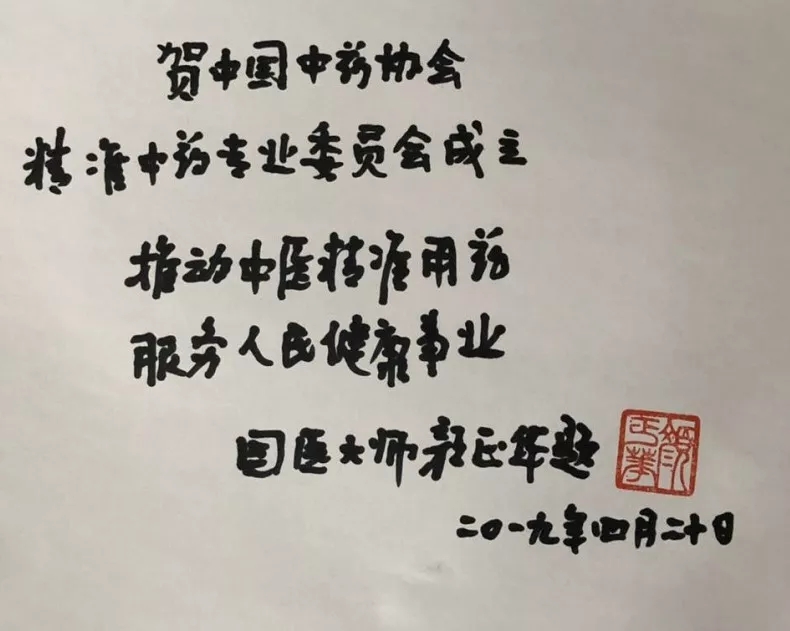 贺中国中药协会
精准中药专业委员会成立
推动中医精准用药
服务人民健康事业
国医大师颜正华题
顏正華
二〇一九年四月二十日